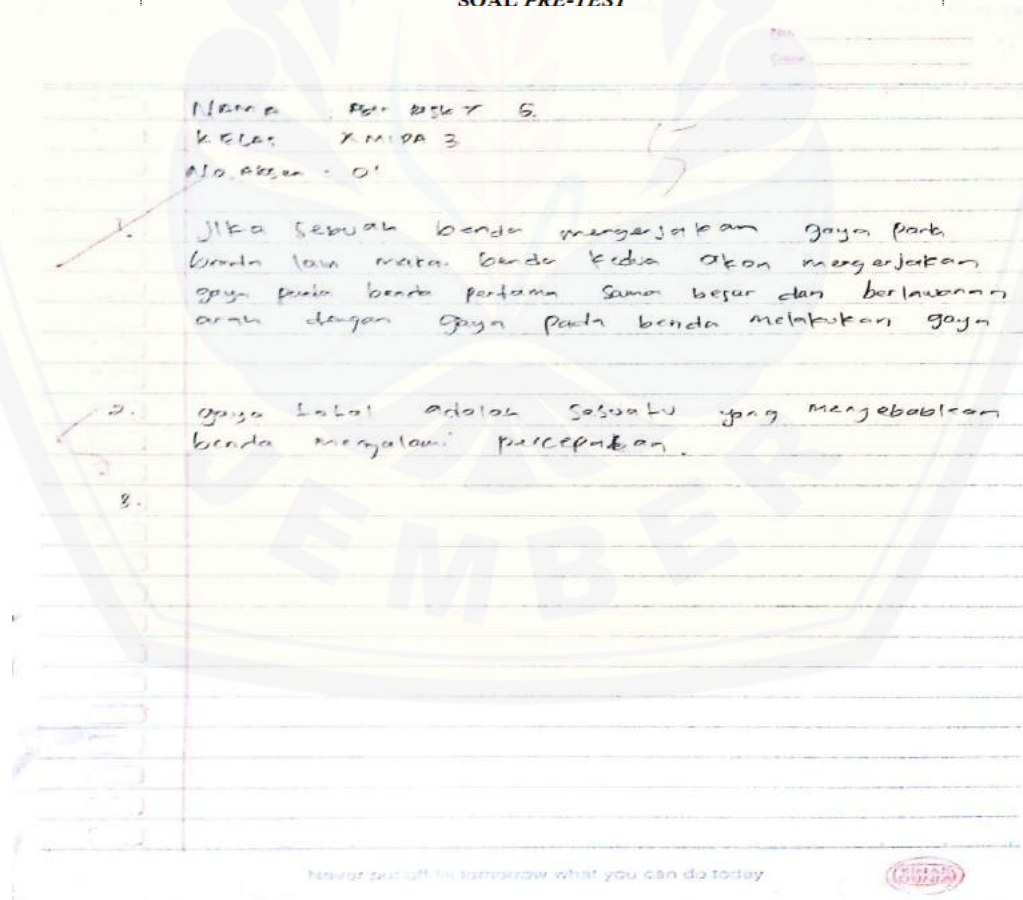 SOAL PRE-TEST
No.
Date
Nama : S.
KELAS X MIPA 3
No. Absen : 01
5
1. Jika sebuah benda mengerjakan gaya pada
benda lain maka benda kedua akan mengerjakan
gaya pada benda pertama sama besar dan berlawanan
arah dengan gaya pada benda melakukan gaya
2. gaya total adalah sesuatu yang mengebabkan
benda mengalami percepatan.
3.
JEMBER
Never put off to tomorrow what you can do today
SINAR DUNIA